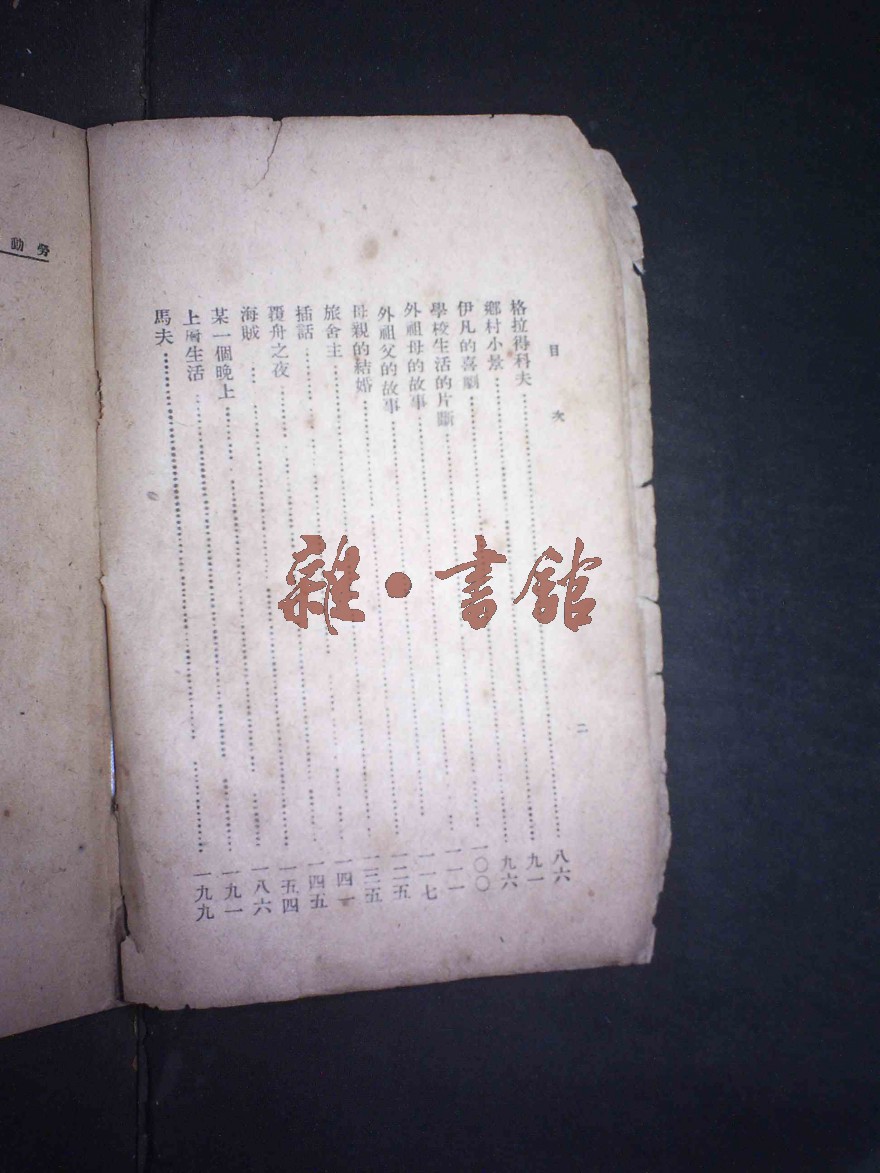 目次
二
格拉得科夫……八六
鄉村小景……九一
伊凡的喜劇……九六
學校生活的片斷……一〇〇
外祖母的故事……一一一
外祖父的故事……一一七
母親的結婚……一二五
旅舍主……一三五
插話……一四一
覆舟之夜……一四五
海賊……一五四
某一個晚上……一八六
上生活……一九一
馬夫……一九九
勞動
雜·書館